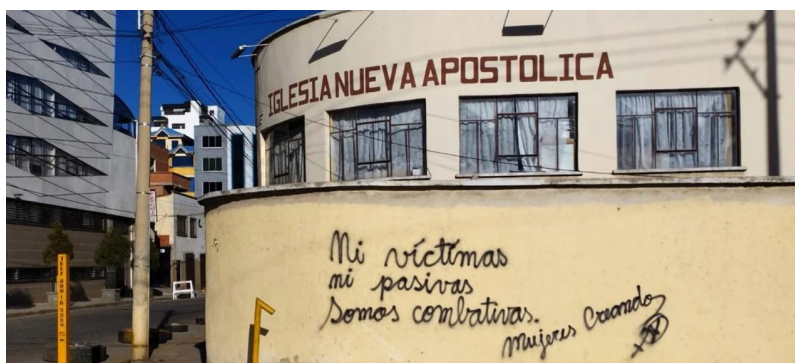 IGLESIA NUEVA APOSTOLICA
Ni víctimas
ni pasivas
Somos combativas.
Mujeres Creando